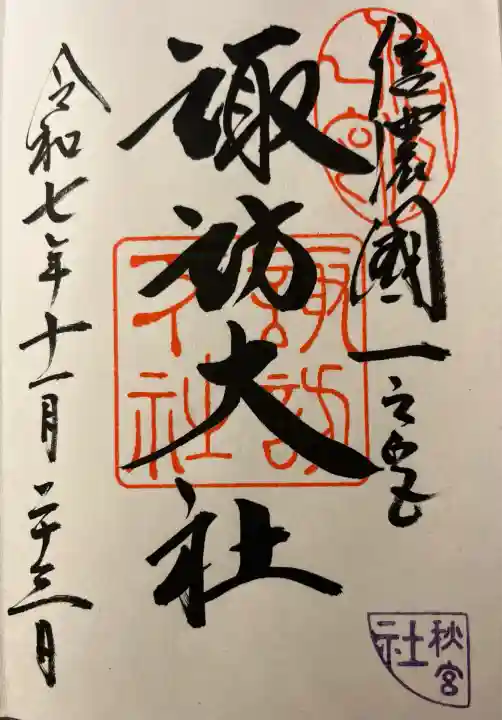 信濃國一之宮
諏訪大社
令和七年十一月二十三日
秋宮
社